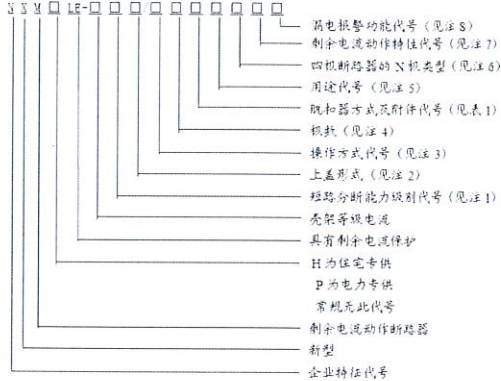 N X M □ LE-□ □ □/□ □ □ □ □ □
漏电报警功能代号（见注8）
剩余电流动作特性代号（见注7）
四极断路器的N极类型（见注6）
用途代号（见注5）
脱扣器方式及附件代号（见表1）
极数（见注4）
操作方式代号（见注3）
上盖形式（见注2）
短路分断能力级别代号（见注1）
壳架等级电流
具有剩余电流保护
H为住宅专供
P为电力专供
常规无此代号
剩余电流动作断路器
新型
企业特征代号